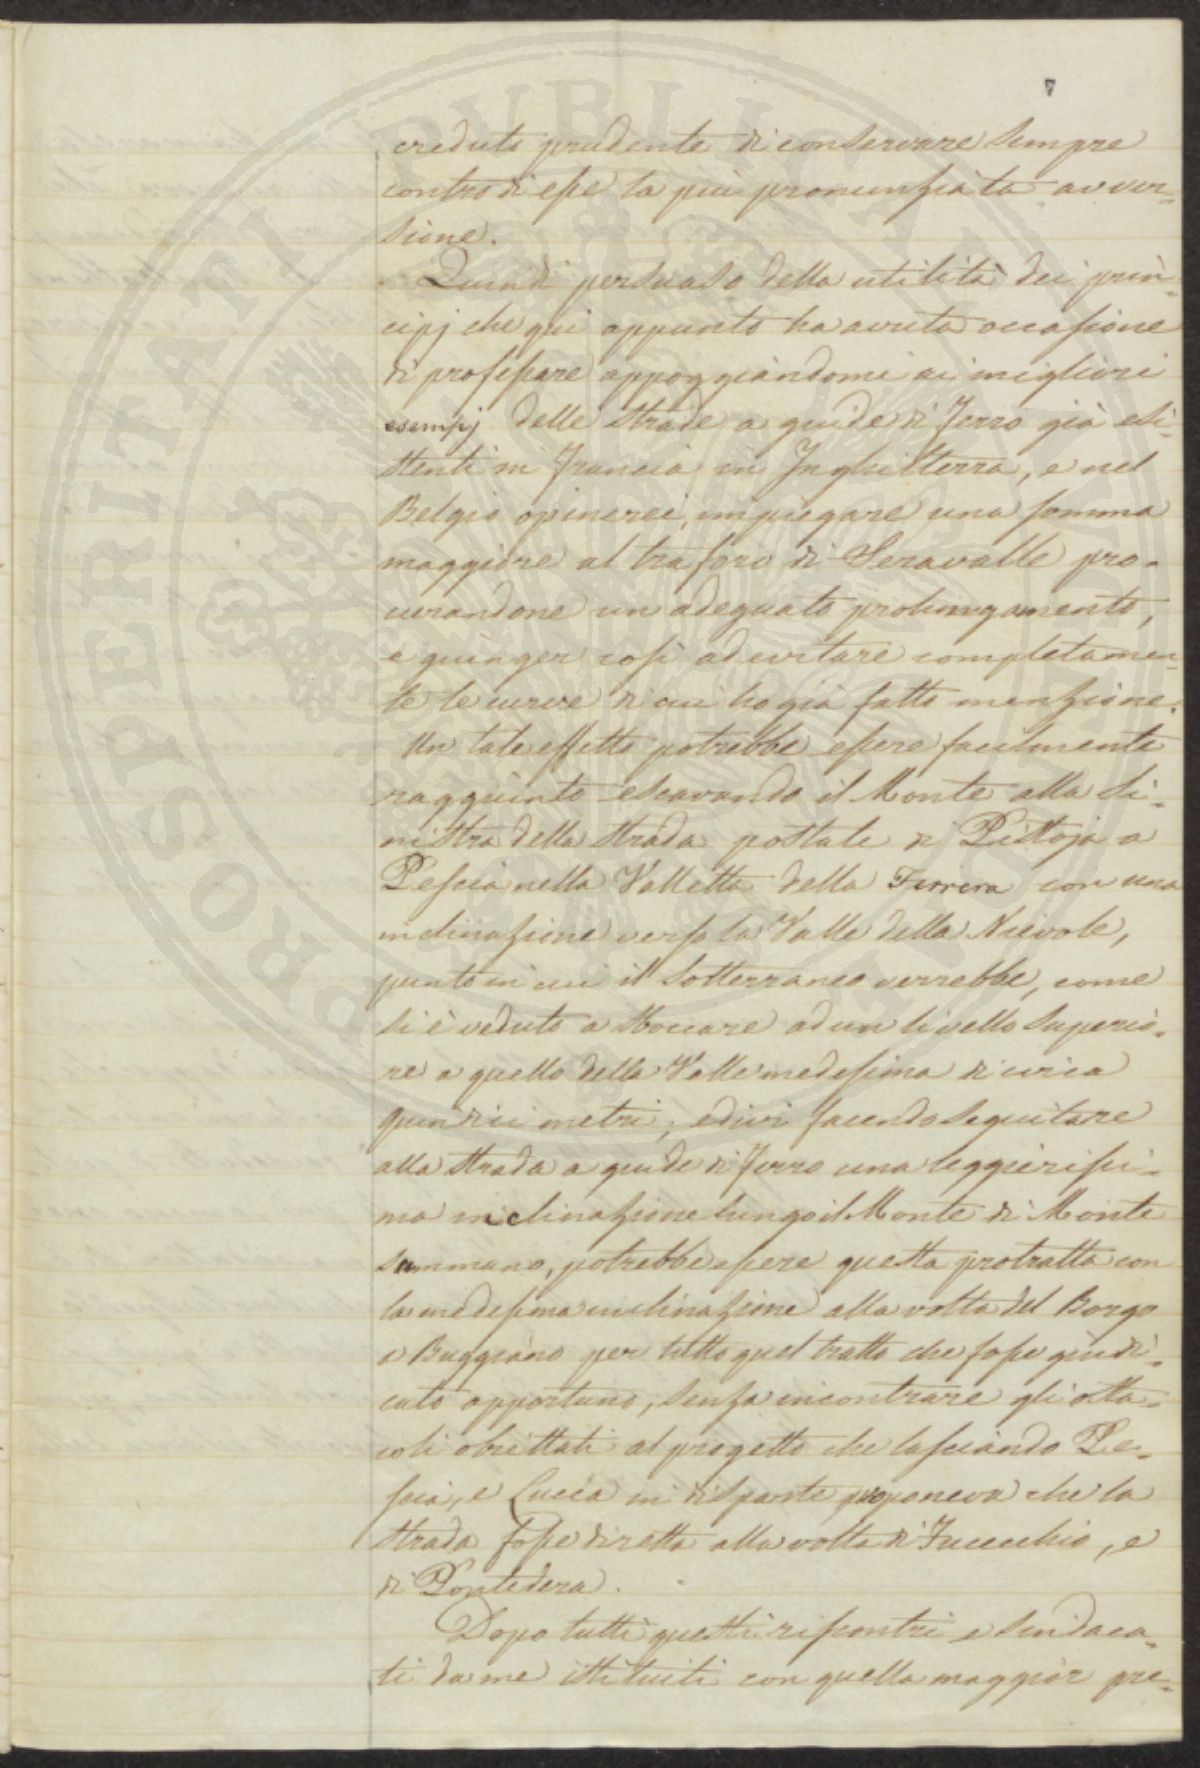 7
creduto prudente di conservare sempre
contro di esse la più pronunziata avver-
sione.
Quindi persuaso della utilità dei prin-
cipj che qui appunto ho avuta occasione
di professare appoggiandomi ai migliori
esempj delle strade a guide di ferro già esi-
stenti in Francia in Inghilterra, e nel
Belgio opinerei, impiegare una somma
maggiore al traforo di Seravalle pro-
curandone un adeguato prolungamento,
e giunger così ad evitare completamen-
te le curve di cui ho già fatto menzione.
Un tale effetto potrebbe essere facilmente
raggiunto escavando il Monte alla si-
nistra della strada postale di Pistoja a
Pescia nella Valletta della Forrera con una
inclinazione verso la Valle della Nievole,
punto in cui il sotterraneo verrebbe, come
si è veduto a sboccare ad un livello superio-
re a quello della Valle medesima di circa
quindici metri; ed ivi facendo seguitare
alla strada a guide di ferro una leggierissi-
ma inclinazione lungo il Monte di Monte
summano, potrebbe essere questa protratta con
la medesima inclinazione alla volta del Borgo
a Buggiano per tutto quel tratto che fosse giudi-
cato opportuno, senza incontrare gli osta-
coli obiettati al progetto che lasciando Pe-
scia, e Lucca in disparte proponeva che la
strada fosse diretta alla volta di Fucecchio, e
di Pontedera.
Dopo tutti questi riscontri e sindaca-
ti da me istituiti con quella maggior pre-
PROSPERITATI PUBLICAE